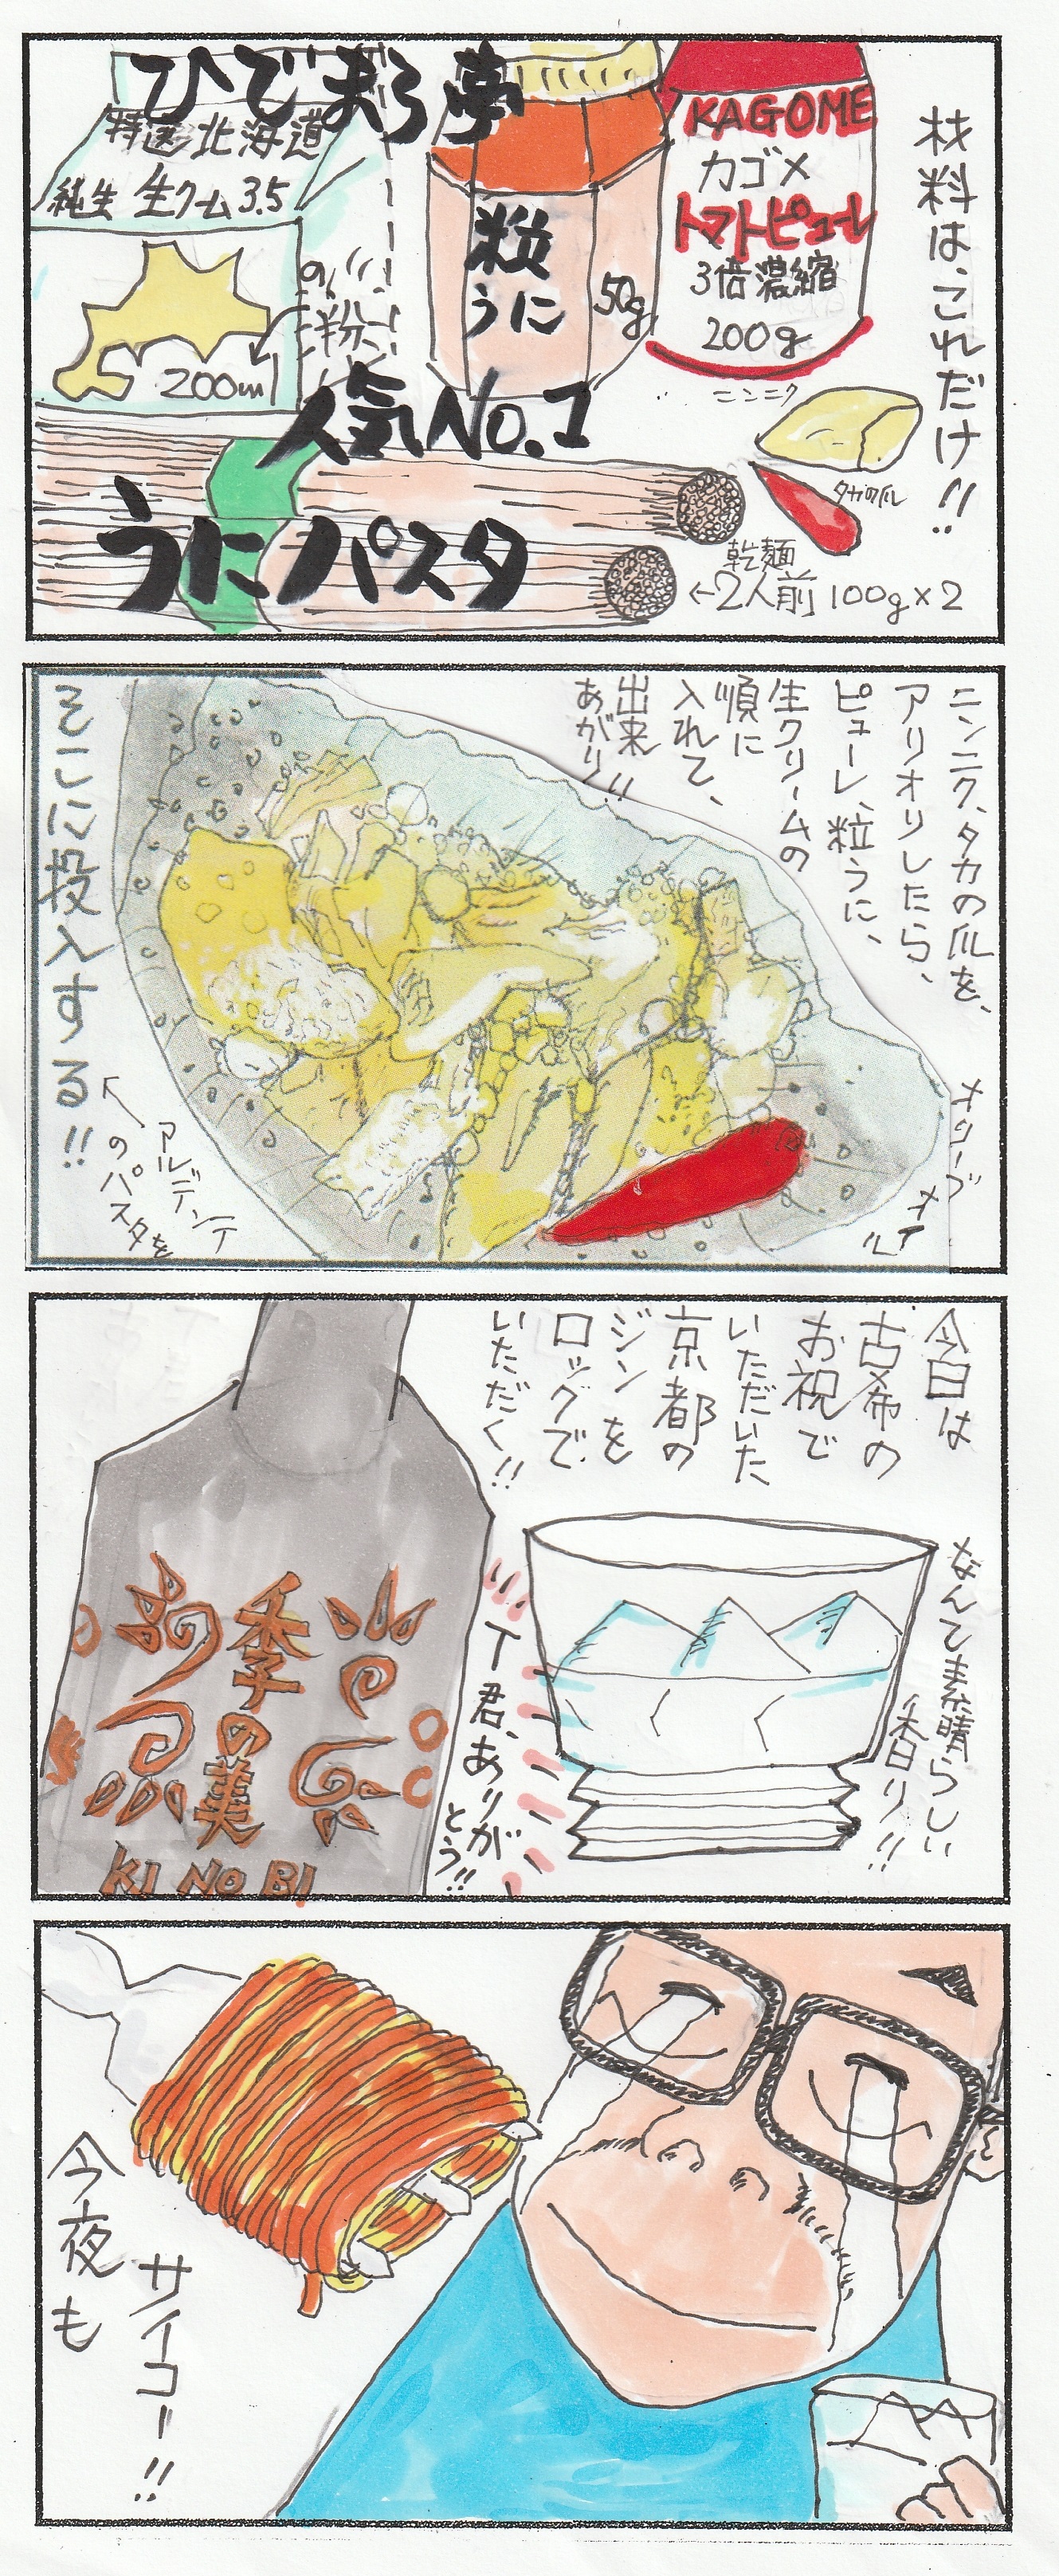 ひでまろ亭
人気No.1
うにパスタ
材料は、これだけ!!
KAGOME
カゴメ
トマトピューレ
3倍濃縮
200g
粒
うに
50g
特選北海道
純生 生クーム 3.5
200ml
の
半分
ニンニク
タカの爪
乾麺
←2人前 100g×2
ニンニク、タカの爪を、
アリオリしたら、
ピューレ、粒うに、
生クリームの
順に
入れて、
出来
あがり!!
オリーブ
オイル
そこに投入する!!
アルデンテ
のパスタを
今日は
古希の
お祝で
いただいた
京都の
ジンを
ロックで
いただく!!
なんて素晴らしい
香り!!
T君、ありが
とう!!
季の美
KI NO BI
今夜も
サイコー!!